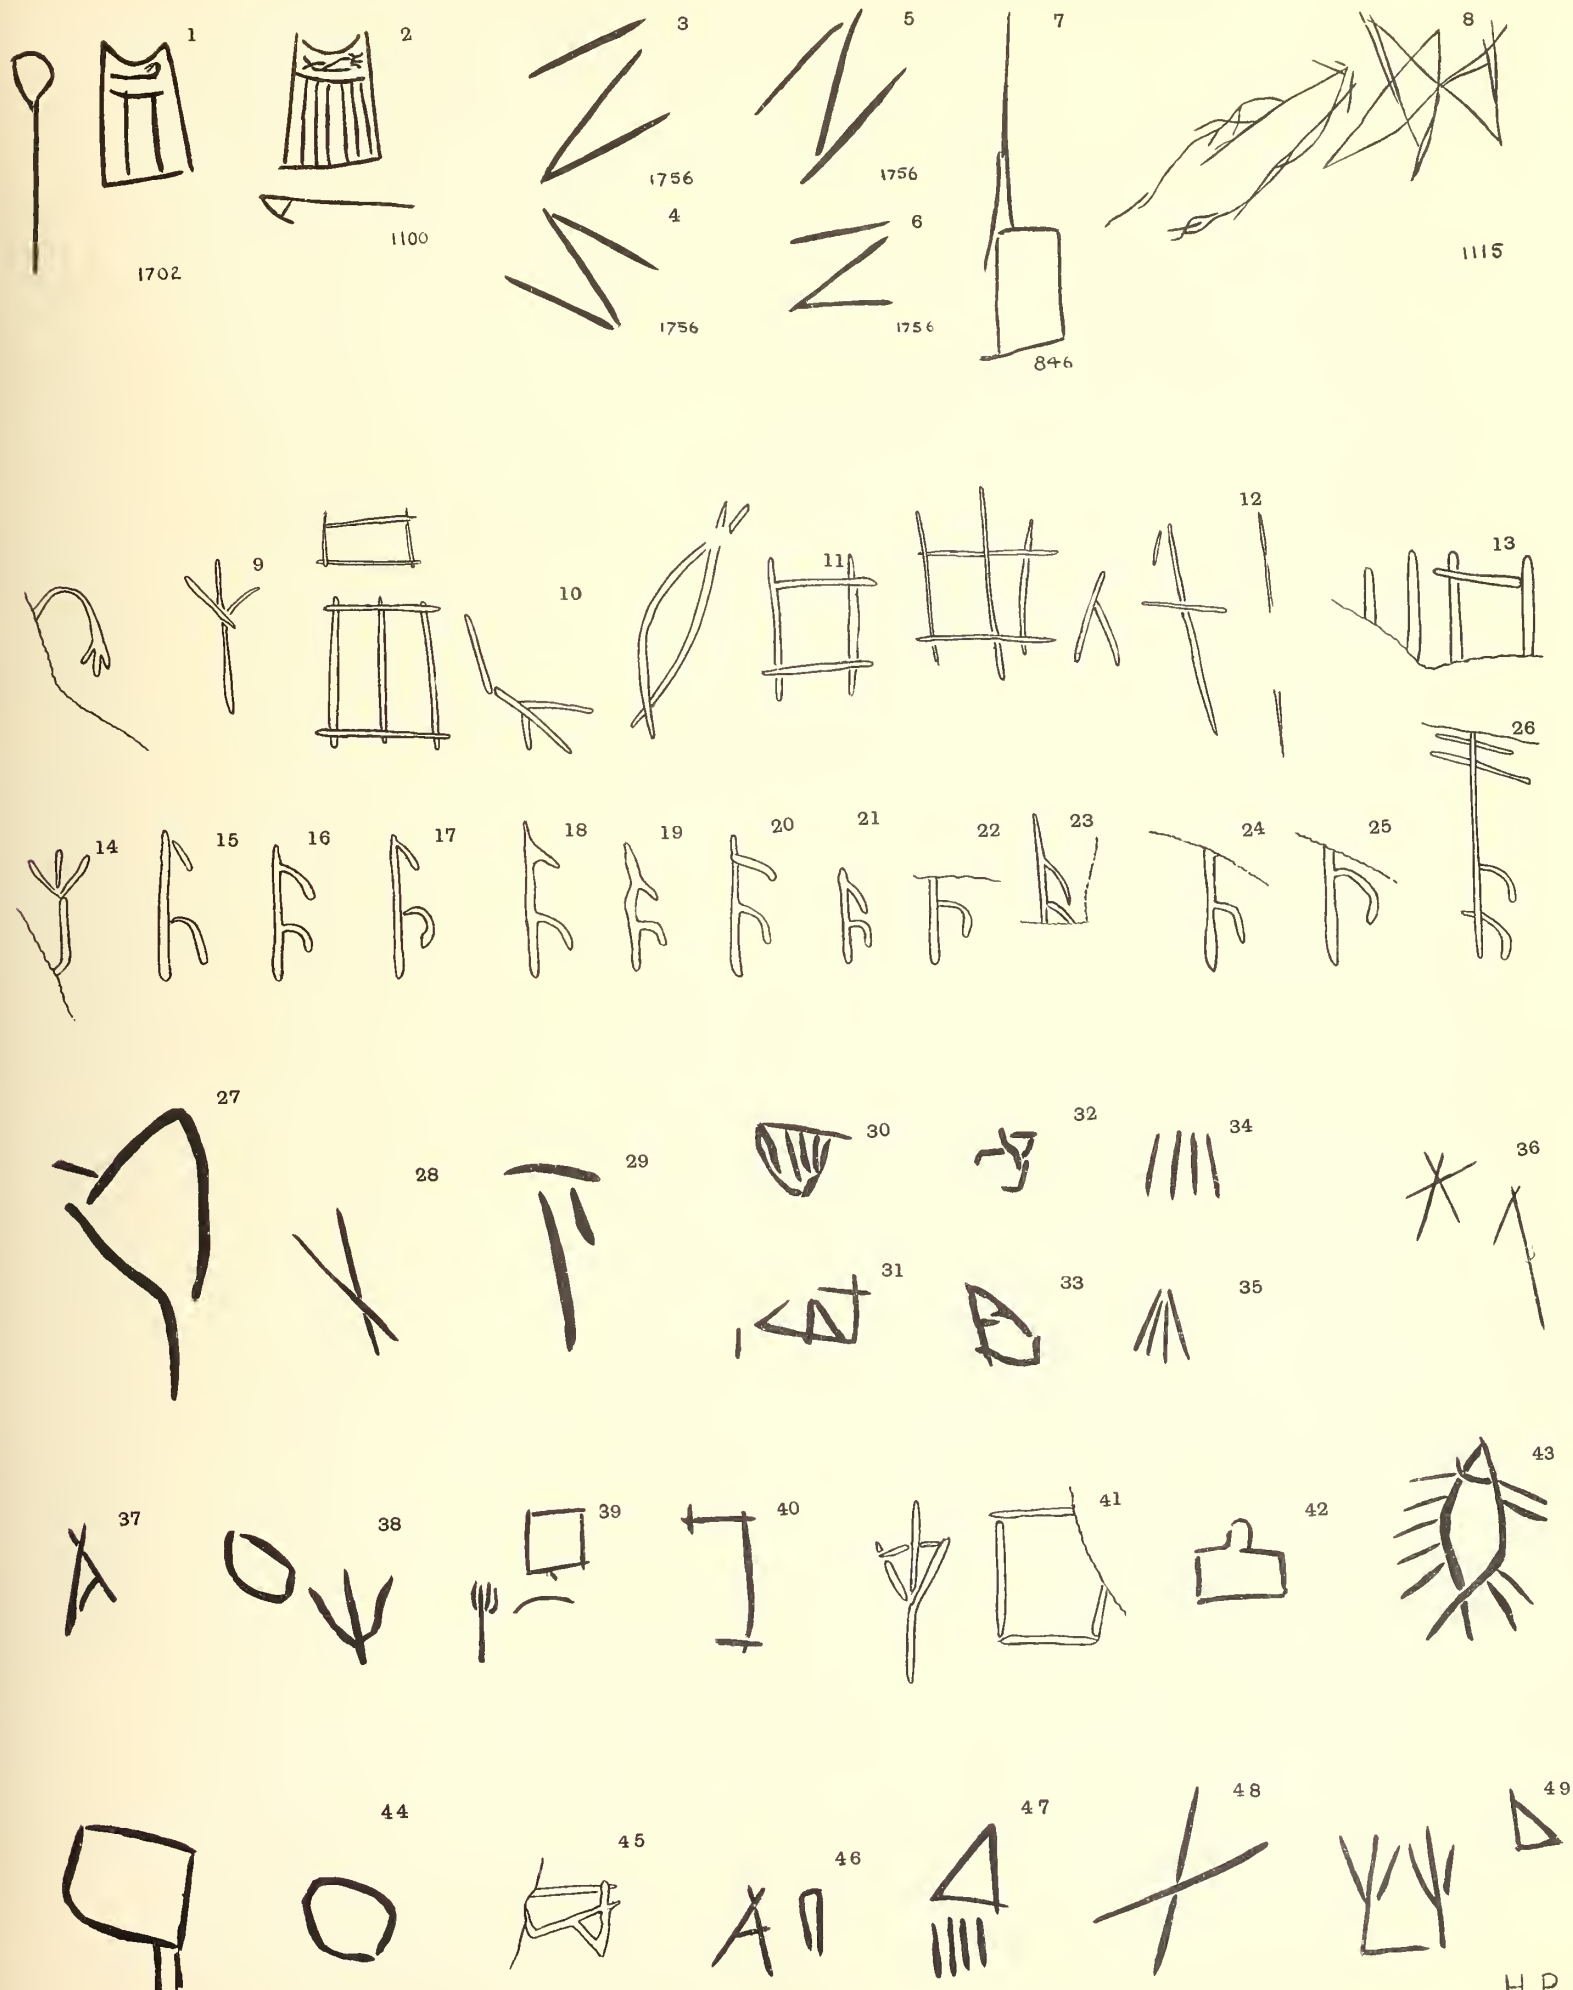 1 2 3 5 7 8
1756 1756
4 6
1100
1702 1756 1756 1115
846
9 10 11 12 13
26
14 15 16 17 18 19 20 21 22 23 24 25
27 28 29 30 32 34 36
31 33 35
37 38 39 40 41 42 43
44 45 46 47 48 49
H.P.